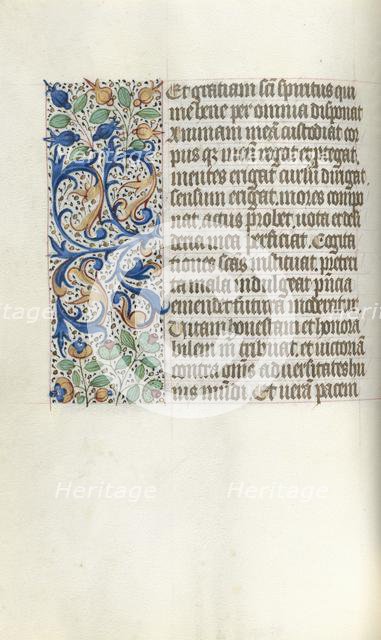 Et gratiam sci spiritus qui
me bene per omnia disponat
Animam mea custodiat cor
pus regat et protegat
mentes erigat cursu dirigat
sensum erigat mores compo
nat actus probet vota et desi
deria mea perficiat Cogita
tiones scas instituat preteri
ta mala indulgeat
emendet futura moderetur
Vitam honestam et honora
bilem m tribuat et victoria
contra oms adversitates hu
ius mudi Et vera pacem
Heritage
Heritage
Heritage
Heritage
Heritage
Heritage